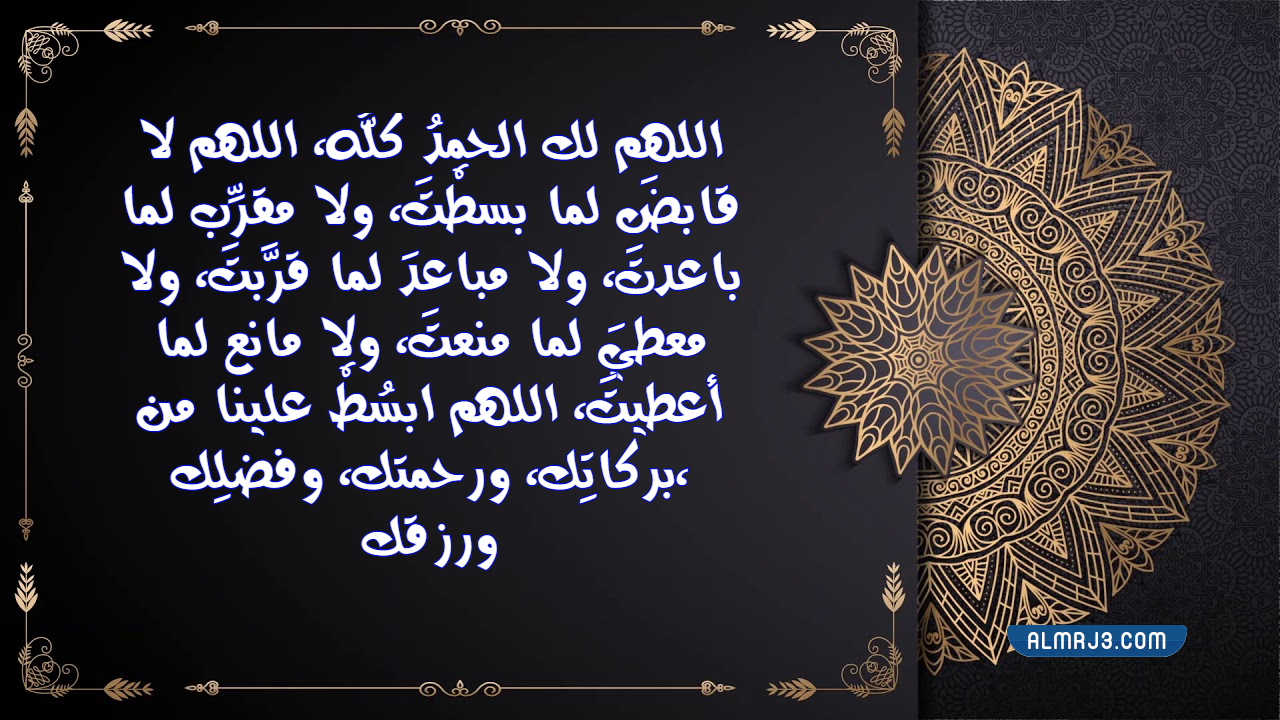 اللهم لك الحمِدُ كلَّه، اللهم لا
قابضَ لما بسطْتَ، ولا مقرِّب لما
باعدتَ، ولا مباعدَ لما قرَّبتَ، ولا
معطيَ لما منعتَ، ولا مانع لما
أعطيتَ، اللهم ابسُطْ علينا من
،بركاتِك، ورحمتك، وفضلِك
ورزقك
ALMRJ3.COM